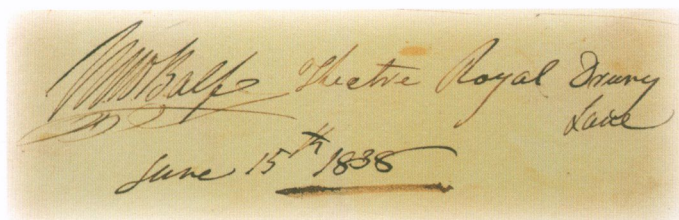 MWBalfe Theatre Royal Drury
Lane
June 15th 1838